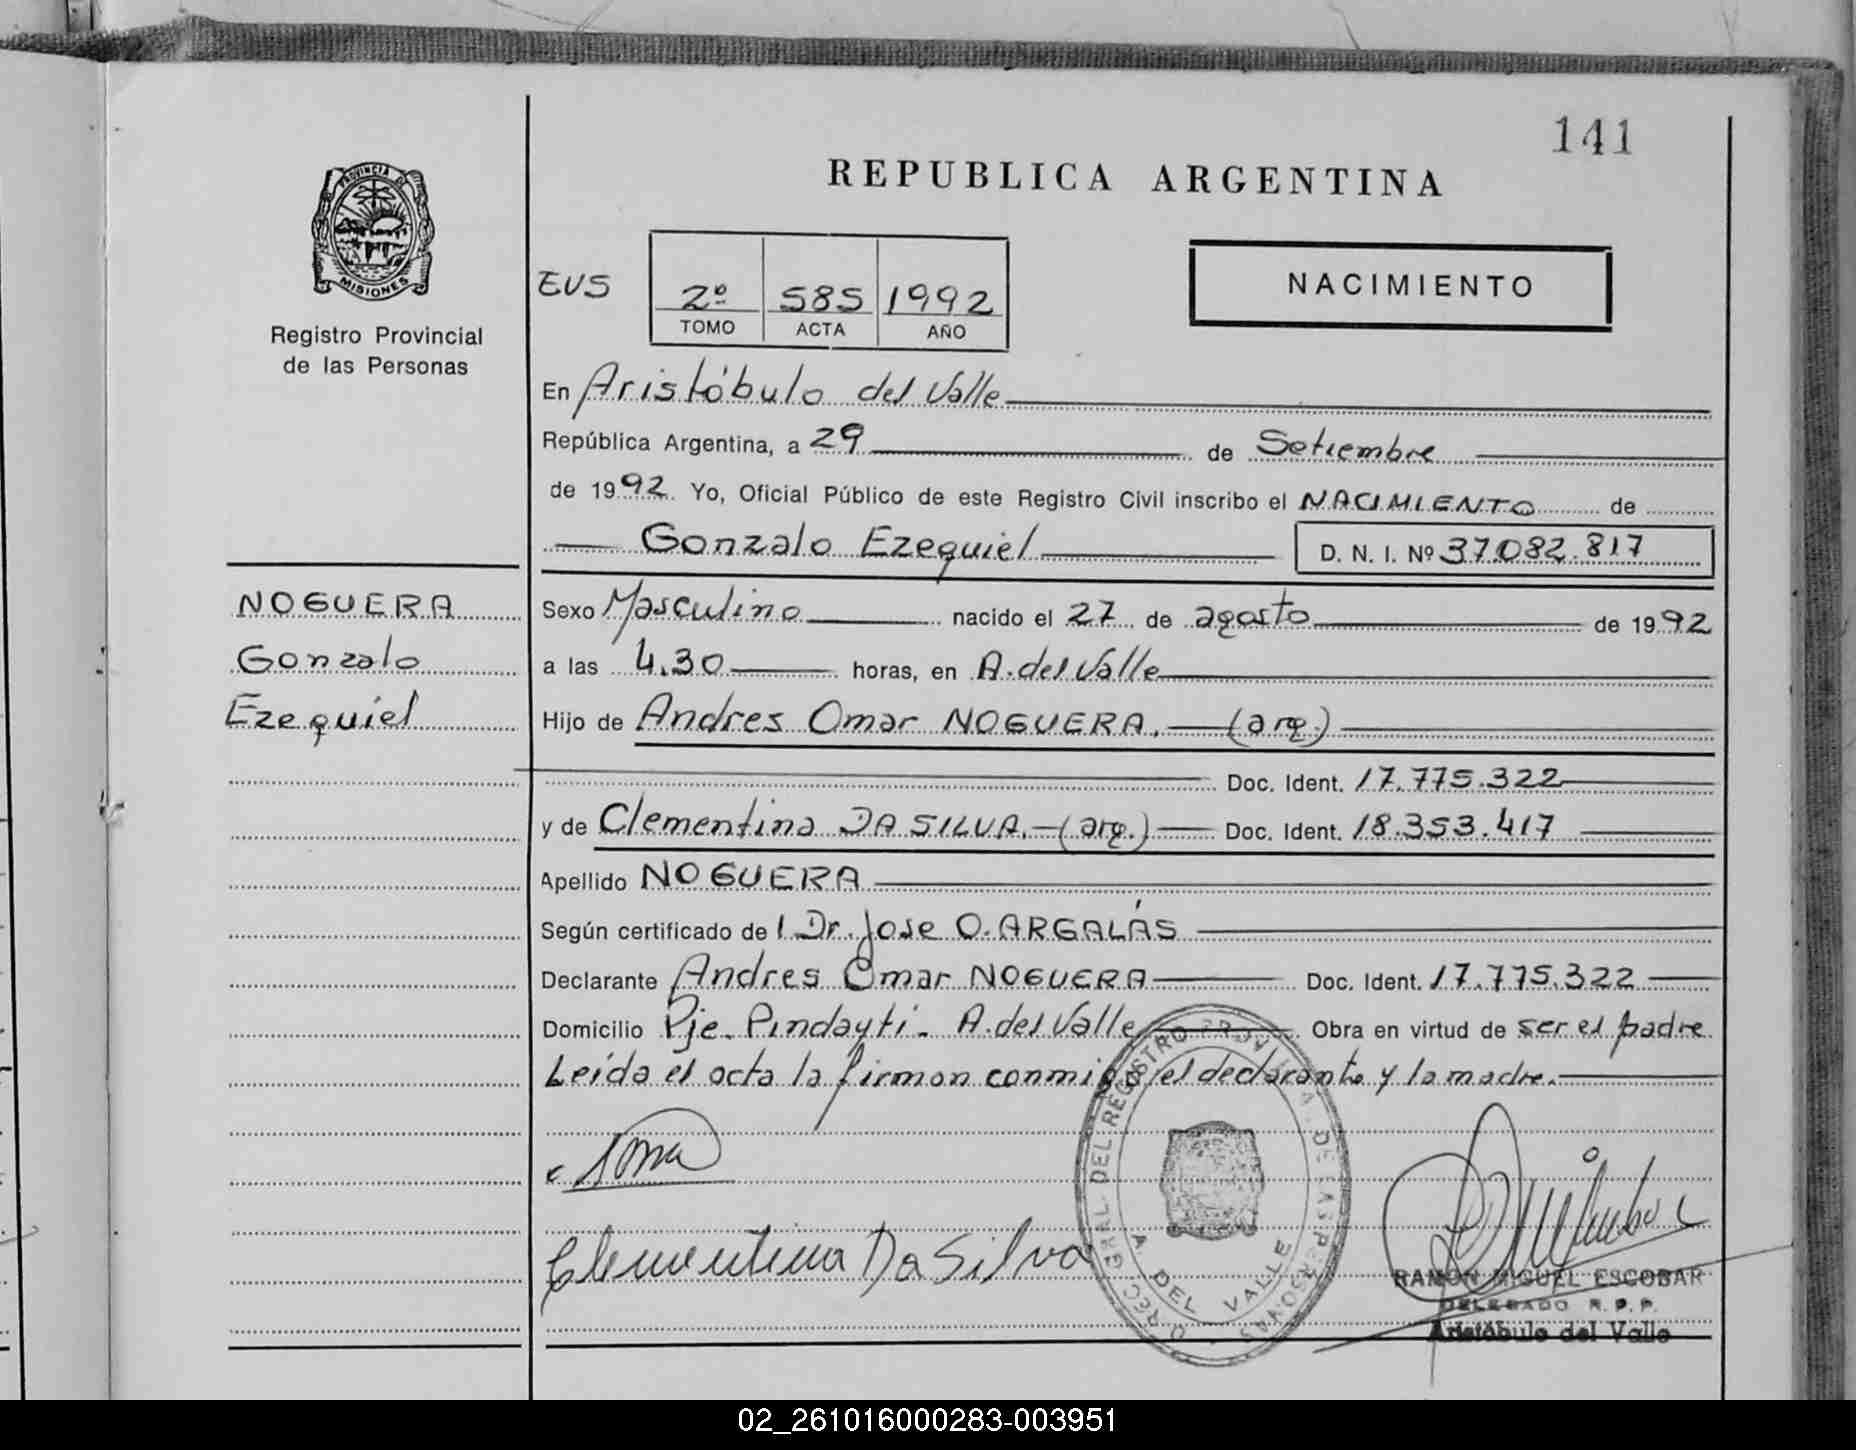 141
REPUBLICA ARGENTINA
PROVINCIA DE
MISIONES
Registro Provincial
de las Personas
EUS
2º 585 1992
TOMO ACTA AÑO
NACIMIENTO
En Aristóbulo del Valle
República Argentina, a 29 de Setiembre
de 1992. Yo, Oficial Público de este Registro Civil inscribo el NACIMIENTO de
Gonzalo Ezequiel D. N. I. Nº 37.082.817
NOGUERA
Gonzalo
Ezequiel
Sexo Masculino nacido el 27 de agosto de 1992
a las 4.30 horas, en A. del Valle
Hijo de Andres Omar NOGUERA. (arg.)
Doc. Ident. 17.775.322
y de Clementina DA SILVA. (arg.) Doc. Ident. 18.353.417
Apellido NOGUERA
Según certificado del Dr. Jose O. ARGALÁS
Declarante Andres Omar NOGUERA Doc. Ident. 17.775.322
Domicilio Pje. Pindayti. A. del Valle Obra en virtud de ser el padre
Leída el acta la firman conmigo el declarante y la madre.
Clementina Da Silva
A. DEL VALLE
RAMON MIGUEL ESCOBAR
DELEGADO R. P. P.
Aristóbulo del Valle
02_261016000283-003951